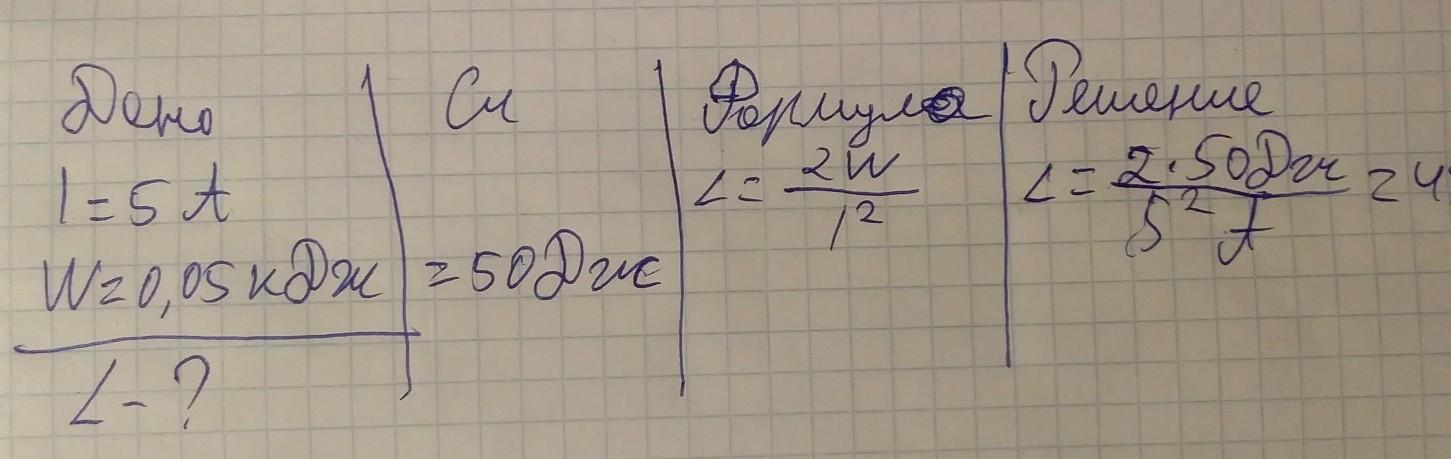 Дано
I = 5 A
W = 0,05 кДж
L - ?
Си
= 50 Дж
Формула
L = 2W / I²
Решение
L = 2 · 50 Дж / 5² A = 4